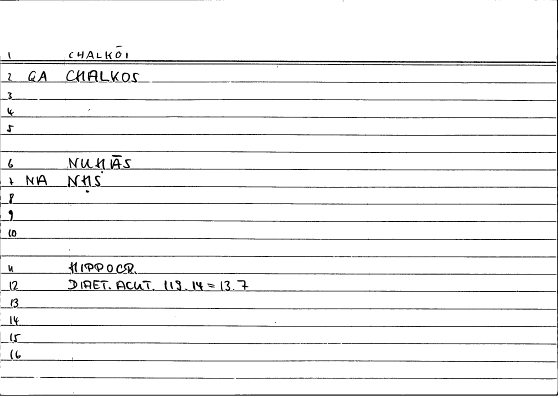 1 CHALKŌI
2 GA CHALKOS
3
4
5
6 NUḤĀS
7 NA NḤS
8
9
10
11 HIPPOCR.
12 DIAET. ACUT. 119.14 = 13.7
13
14
15
16